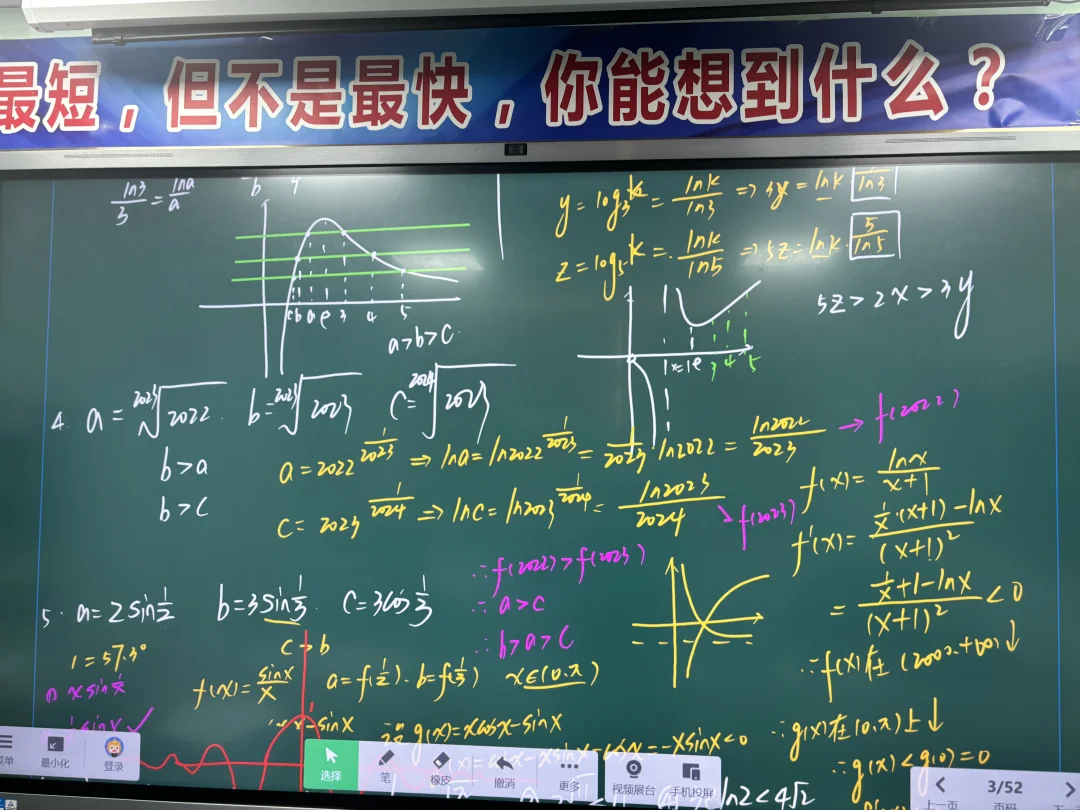 最短，但不是最快，你能想到什么？
ln3/3 = lna/a
y = log₃k = lnk/ln3 ⇒ 3y = lnk
z = log₅k = lnk/ln5 ⇒ 5z = lnk · 5/ln5
5z > 2x > 3y
c b a e 3 4 5
a > b > c
1 x=1 e 3 4 5
4 a = ²⁰²³√2022 b = ²⁰²³√2023 c = ²⁰²⁴√2023
b > a
b > c
a = 2022^(1/2023) ⇒ lna = ln2022^(1/2023) = 1/2023 ln2022 = ln2022/2023 → f(2022)
c = 2023^(1/2024) ⇒ lnc = ln2023^(1/2024) = ln2023/2024 ↘ f(2023)
f(x) = lnx/(x+1)
f'(x) = (1/x·(x+1) - lnx)/(x+1)²
= (1/x + 1 - lnx)/(x+1)² < 0
∴ f(2022) > f(2023)
∴ a > c
∴ b > a > c
5. a = 2sin1/2 b = 3sin1/3 c = 3cos1/3
c > b
1 = 57.3°
f(x) = sinx/x a = f(1/2). b = f(1/3) x∈(0.π)
① x sin1/x
g(x) = xcosx - sinx
∴ g(x)在(0.π)上↓
∴ g(x) < g(0) = 0
ln2 < 4√2
最小化
登录
选择
笔
橡皮
撤消
更多
视频展台
手机投屏
3/52
上一页
页码